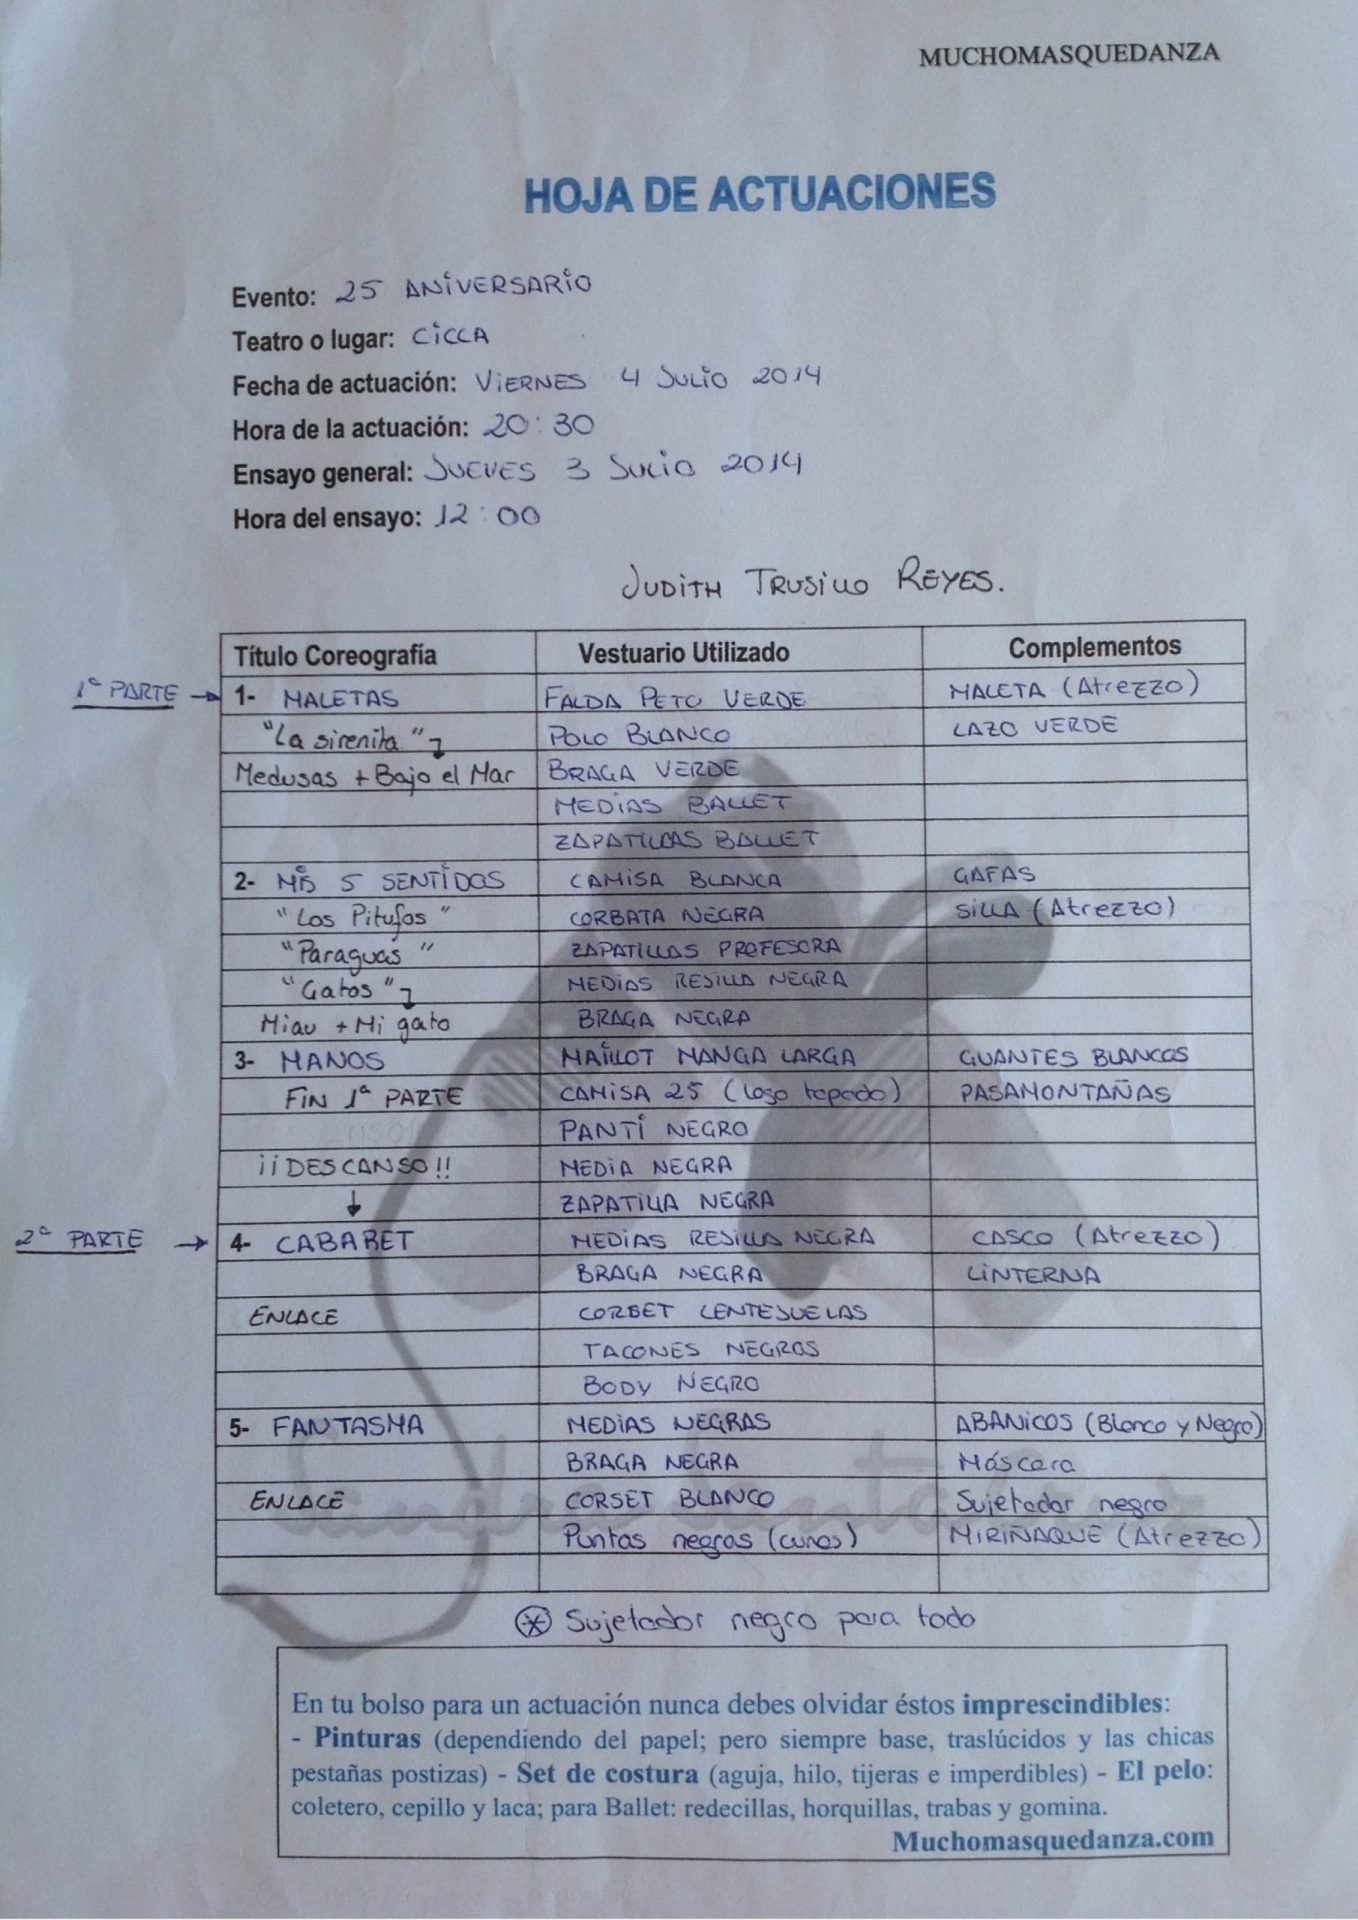 MUCHOMASQUEDANZA
HOJA DE ACTUACIONES
Evento: 25 ANIVERSARIO
Teatro o lugar: CICCA
Fecha de actuación: VIERNES 4 JULIO 2014
Hora de la actuación: 20:30
Ensayo general: JUEVES 3 JULIO 2014
Hora del ensayo: 12:00
JUDITH TRUJILLO REYES.
Título Coreografía Vestuario Utilizado Complementos
1ª PARTE → 1- MALETAS FALDA PETO VERDE MALETA (Atrezzo)
"La sirenita" POLO BLANCO LAZO VERDE
Medusas + Bajo el Mar BRAGA VERDE
MEDIAS BALLET
ZAPATILLAS BALLET
2- MIS 5 SENTIDOS CAMISA BLANCA GAFAS
"Los Pitufos" CORBATA NEGRA SILLA (Atrezzo)
"Paraguas" ZAPATILLAS PROFESORA
"Gatos" MEDIAS REJILLA NEGRA
Miau + Mi gato BRAGA NEGRA
3- MANOS MAILLOT MANGA LARGA GUANTES BLANCOS
FIN 1ª PARTE CAMISA 25 (logo tapado) PASAMONTAÑAS
PANTÍ NEGRO
¡¡DESCANSO!! MEDIA NEGRA
↓ ZAPATILLA NEGRA
2ª PARTE → 4- CABARET MEDIAS REJILLA NEGRA CASCO (Atrezzo)
BRAGA NEGRA LINTERNA
ENLACE CORSET LENTEJUELAS
TACONES NEGROS
BODY NEGRO
5- FANTASMA MEDIAS NEGRAS ABANICOS (Blanco y Negro)
BRAGA NEGRA Máscara
ENLACE CORSET BLANCO Sujetador negro
Puntas negras (cunas) MIRIÑAQUE (Atrezzo)
⊛ Sujetador negro para todo
En tu bolso para un actuación nunca debes olvidar éstos imprescindibles:
- Pinturas (dependiendo del papel; pero siempre base, traslúcidos y las chicas
pestañas postizas) - Set de costura (aguja, hilo, tijeras e imperdibles) - El pelo:
coletero, cepillo y laca; para Ballet: redecillas, horquillas, trabas y gomina.
Muchomasquedanza.com